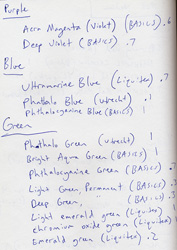 Purple
Acra Magenta (Violet) (BASICS) .6
Deep Violet (BASICS) .7
Blue
Ultramarine Blue (Liquitex) .7
Phthalo Blue (Utrecht) .1
Phthalocyanine Blue (BASICS) 1
Green
Phthalo Green (Utrecht) 1
Bright Aqua Green (BASICS) 1
Phthalocyanine Green (BASICS) .7
Light Green, Permanent (BASICS) .3
Deep Green, (BASICS) .3
Light emerald green (Liquitex) 1
chromium oxide green (Liquitex) 1
Emerald green (Liquitex) .2